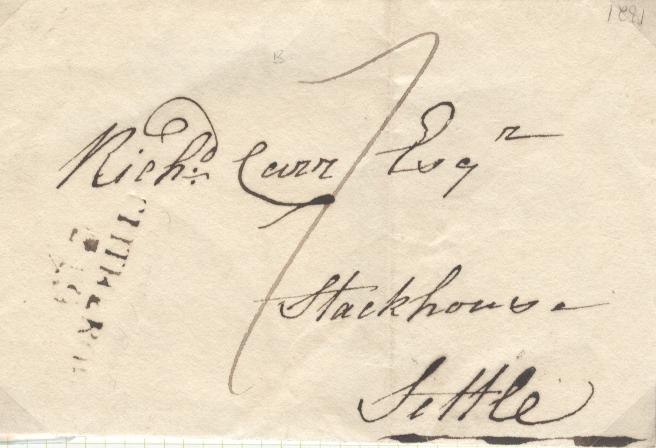 1821
B
7
Richd. Carr Esqr
Stackhouse
Settle